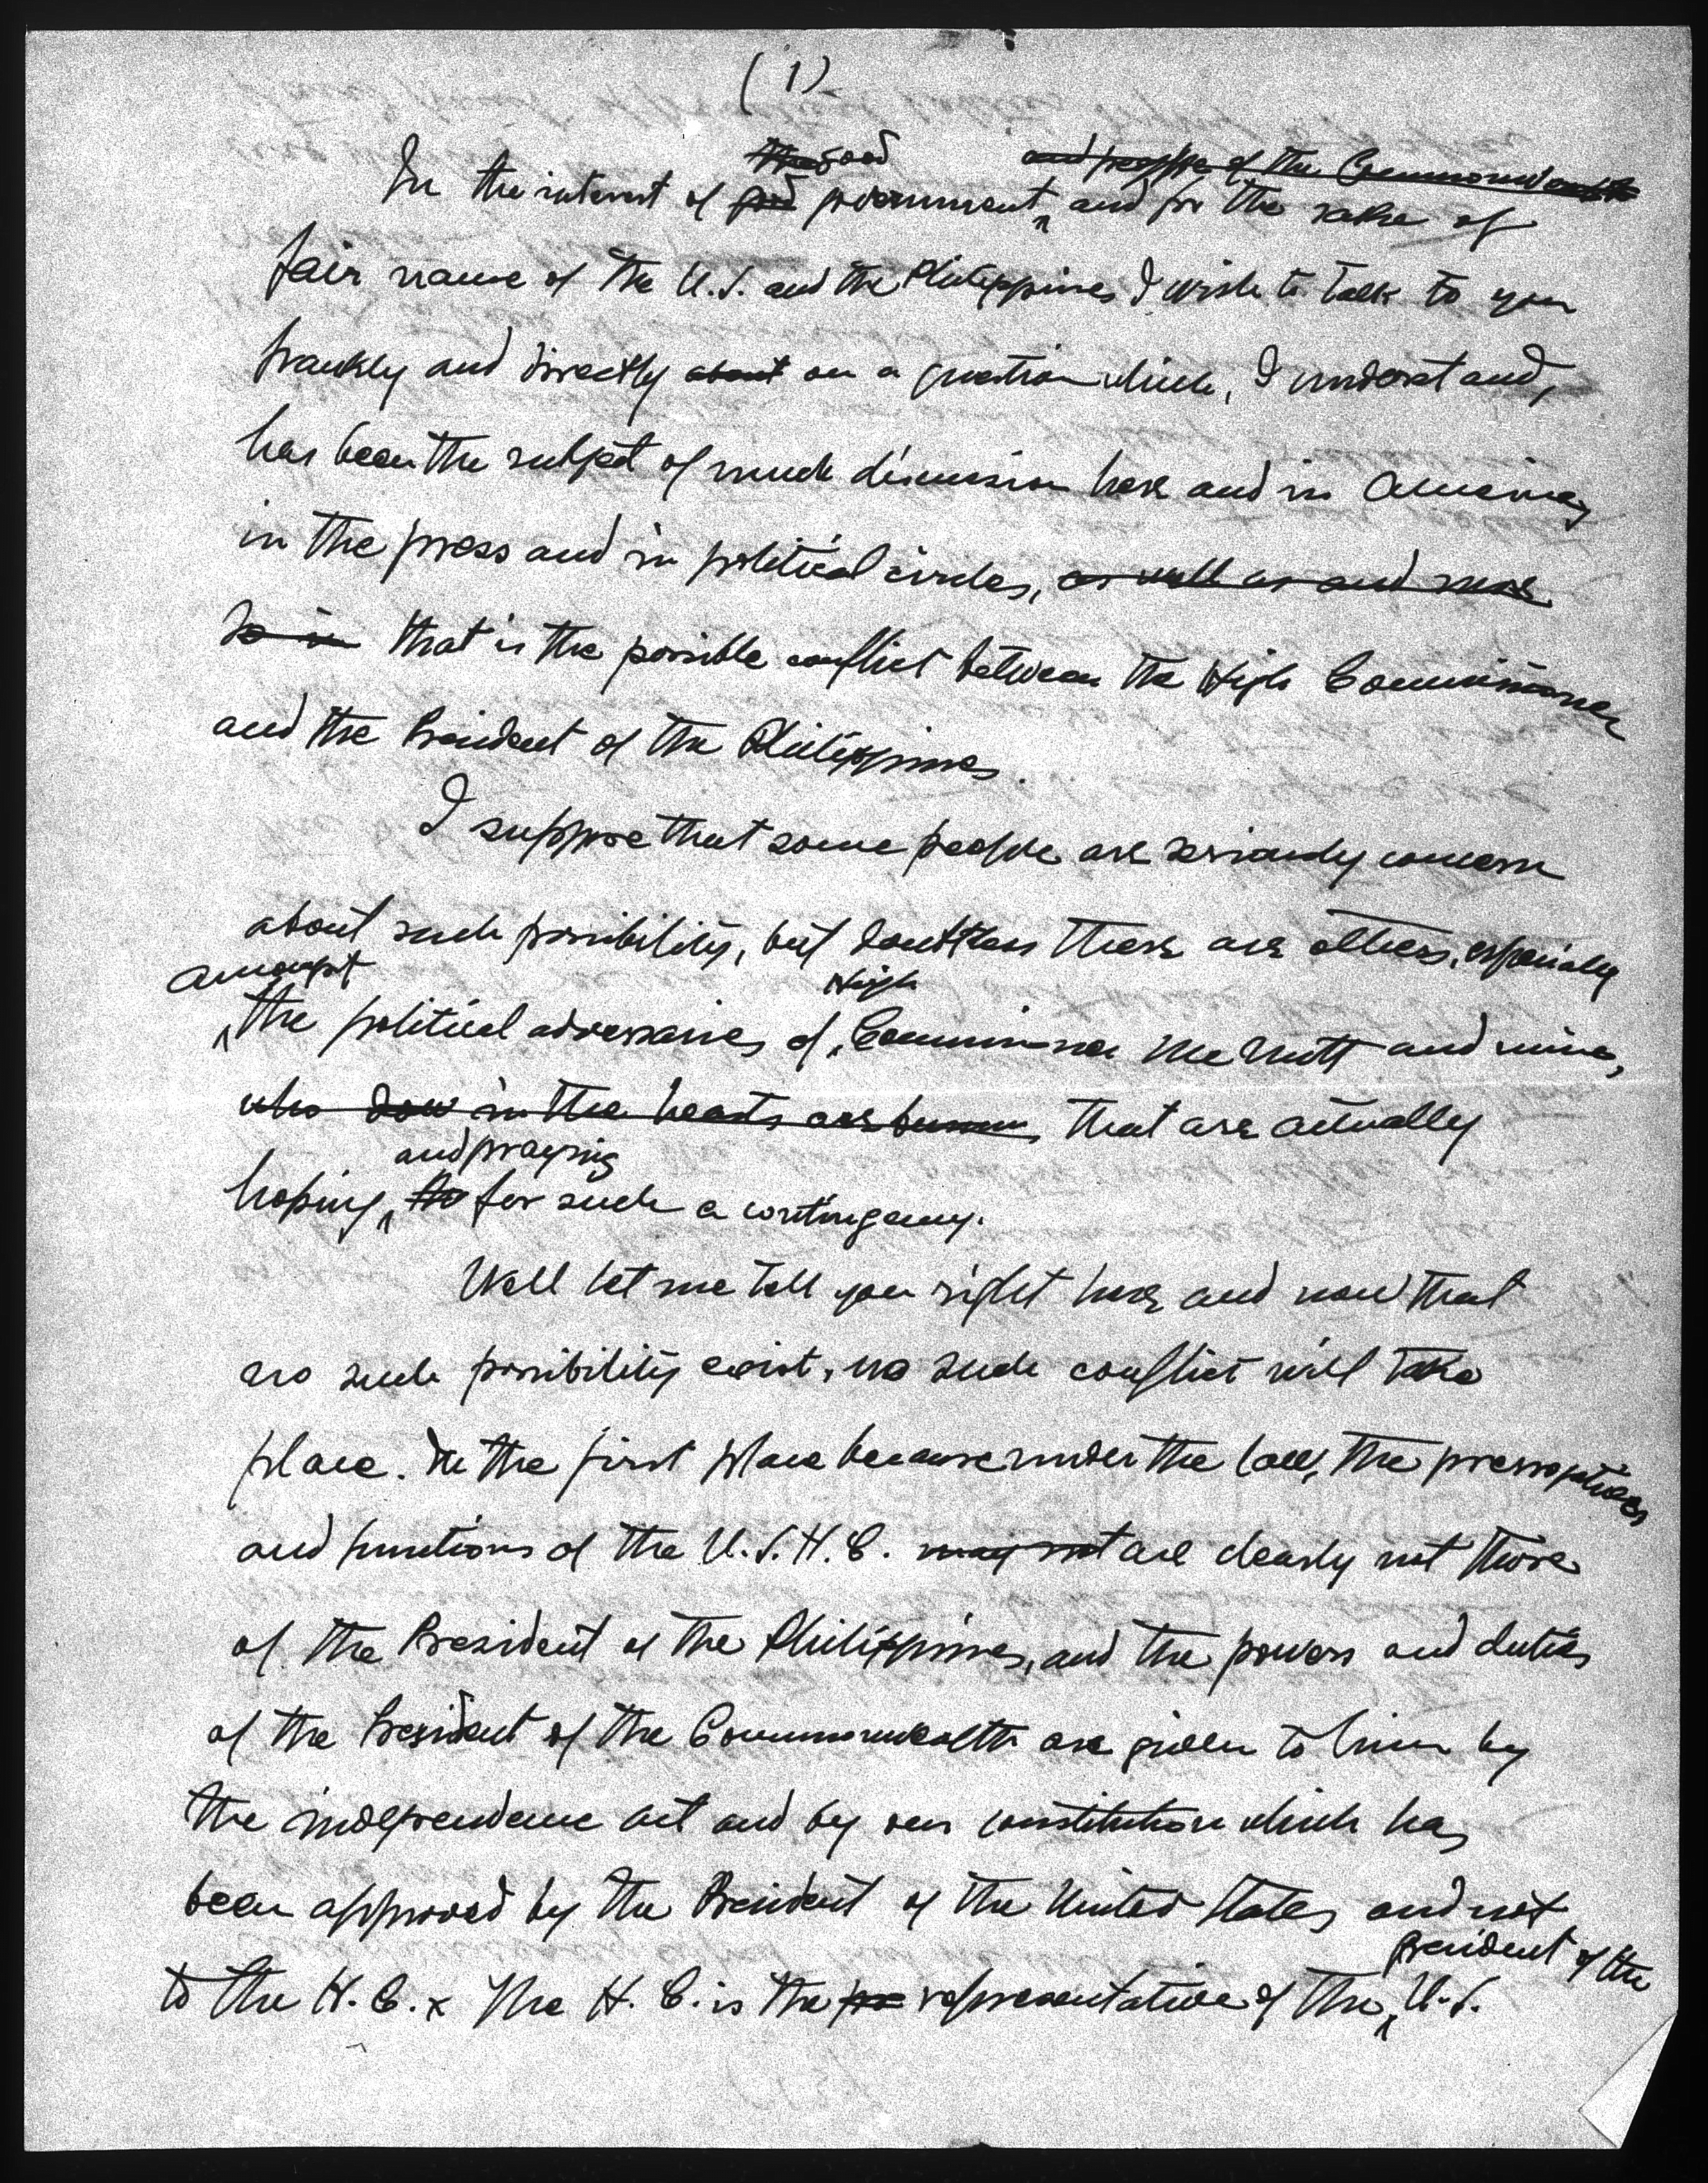 (1)
In the interest of good government, and for the sake of
fair name of the U.S. and the Philippines I wish to talk to you
frankly and directly about on a question which, I understand,
has been the subject of much discussion here and in America,
in the press and in political circles, as well as and more
so in that is the possible conflict between the High Commissioner
and the President of the Philippines.
I suppose that some people are seriously concern
about such possibility, but doubtless there are others, especially
amongst
High
the political adversaries of Commissioner McNutt and mine,
who in the hearts are that are actually
and praying
hoping, for such a contingency.
Well let me tell you right here and now that
no such possibility exist, no such conflict will take
place. In the first place because under the law, the prerrogatives
and functions of the U.S.H.C. may not are clearly not those
of the President of the Philippines, and the powers and duties
of the President of the Commonwealth are given to him by
the independence act and by our constitution which has
been approved by the President of the United States and not
president of the
to the H.C. x The H.C. is the representative of the U.S.